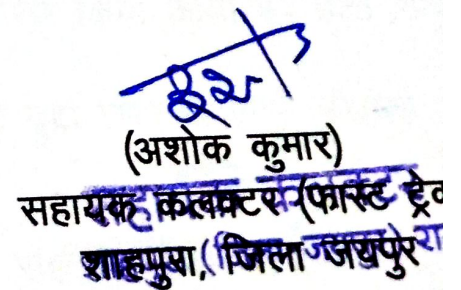 (अशोक कुमार)
सहायक कलक्टर (फास्ट ट्रेक
शाहपुरा, जिला जयपुर